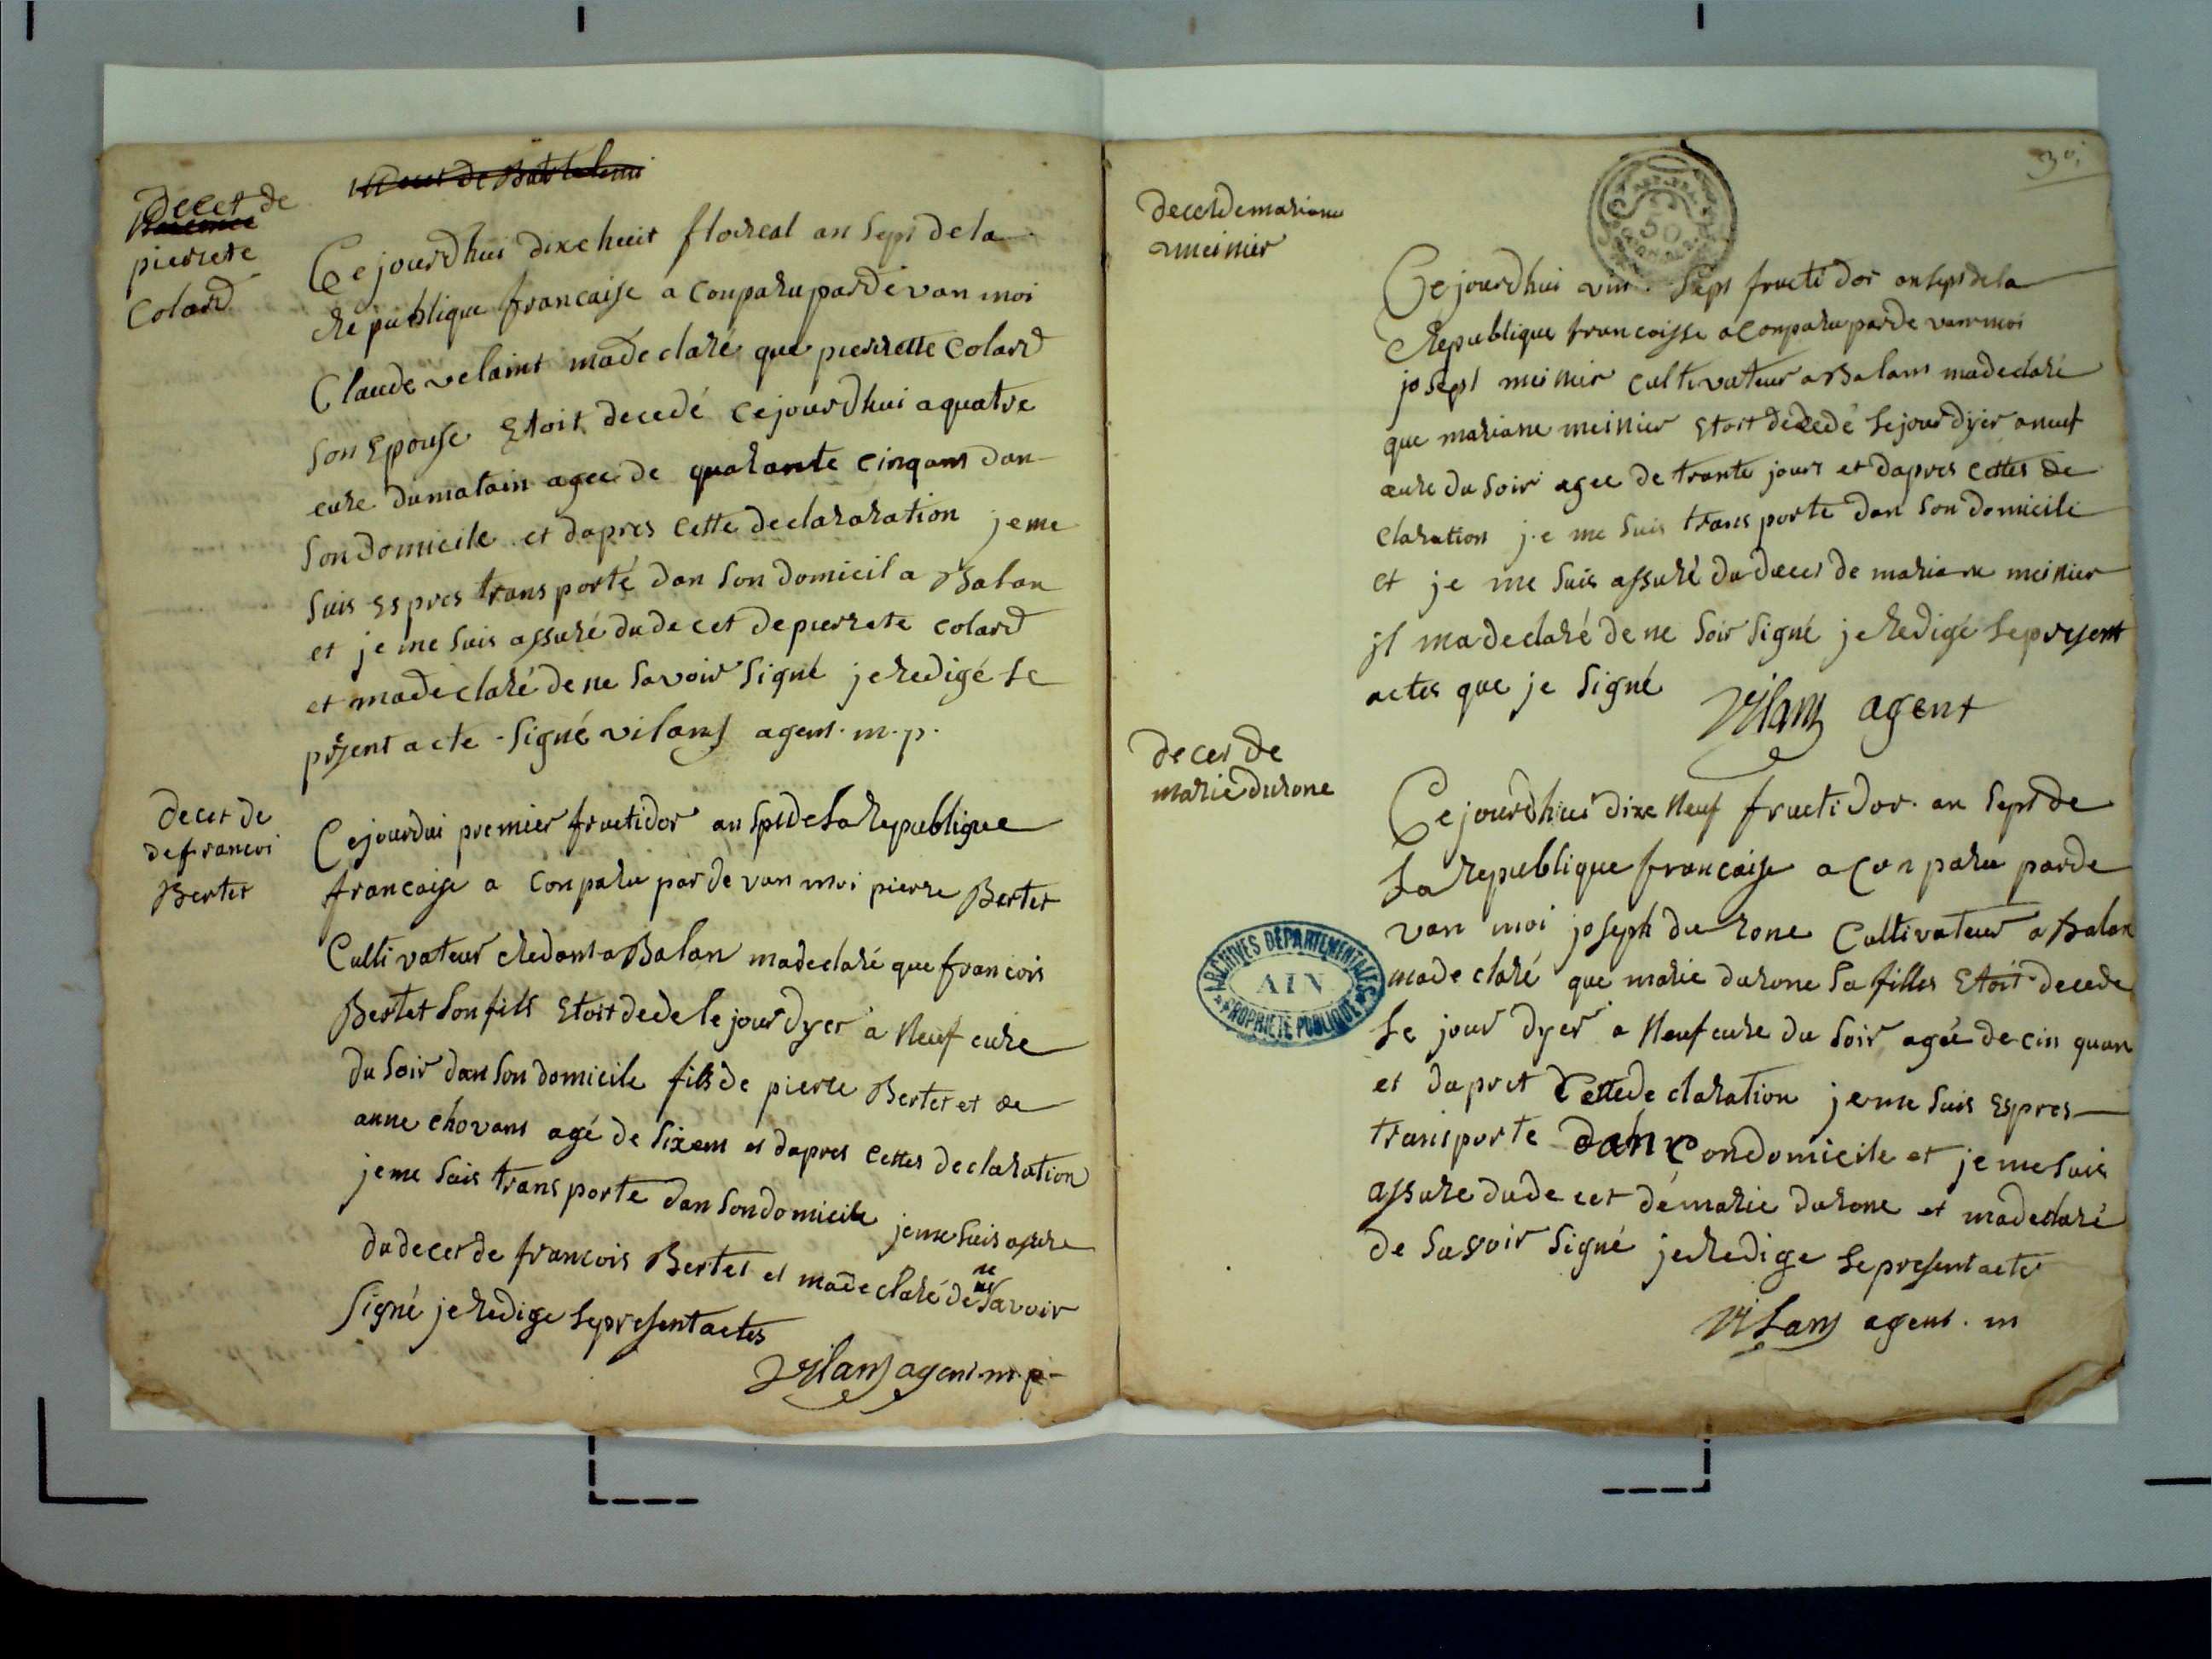 decet de
pierrete
Colard
Ce jourdhui dixe huit floreal an Sept de la
Republique francaise a Conparu pardevan moi
Claude velaint madeclaré que pierrette Colard
Son Epouse Etoit decedé cejourdhui a quatre
eure dumatain agee de quarante cinqans dan
Son Domicile et dapres Cette declararation je me
Suis Espres trans porté dan Son domicil a Balan
et je me Suis assuré du decet de pierrete colard
et madeclaré de ne Savoir Signé je redigé Le
présent acte Signé vilans agent. m. p.
decet de
de francoi
Bertet
Cejourdui premier fructidor an Spt de La Republique
francaise a Conparu par de van moi pierre Bertet
Cultivateur Redant a Balan madeclaré que francois
Bertet Son fils Etoit dede le jour dyer a Neuf eure
du Soir dan Son domicile fils de pierre Bertet et de
anne chovans agé de Sixans et dapres Cettes declaration
je me Suis trans porte dan Son domicile je me Suis assure
du decet de francois Bertet et madeclaré de ne Savoir
Signé je redige Le present actes
Vilans agent. m. p.
30
decet de mariane
meinier
Ce jourdhui vin Sept fructidor an Sept de la
Republique francaisse a Conparu parde van moi
josept meinier Cultivateur a Balans madeclaré
que mariane meinier Etoit decedé Le jour dyer a neuf
eure du Soir agee de trante jours et dapres Cettes de
claration je me Suis transporte dan Son domicile
et je me Suis assuré du deces de mariane meinier
il madeclaré de ne Soir Signé je redigé Le present
actes que je Signé Vilans agent
deces de
marie durone
Ce jourdhui dixe Neuf fructidor an Sept de
La republique francaise a Conparu parde
van moi joseph du rone Cultivateur a Balan
madeclaré que marie durone Sa filles Etoit decede
Le jour dyer a Neuf eure du Soir agée de cin quan
et dapret Cettede claration je me Suis Espres
transporte dan Condomicile et je me Suis
assure du de cet de marie durone et madeclaré
de Savoir Signé je redige Le present actes
Vilans agent. m
ARCHIVES DÉPARTEMENTALES
AIN
PROPRIÉTÉ PUBLIQUE
50